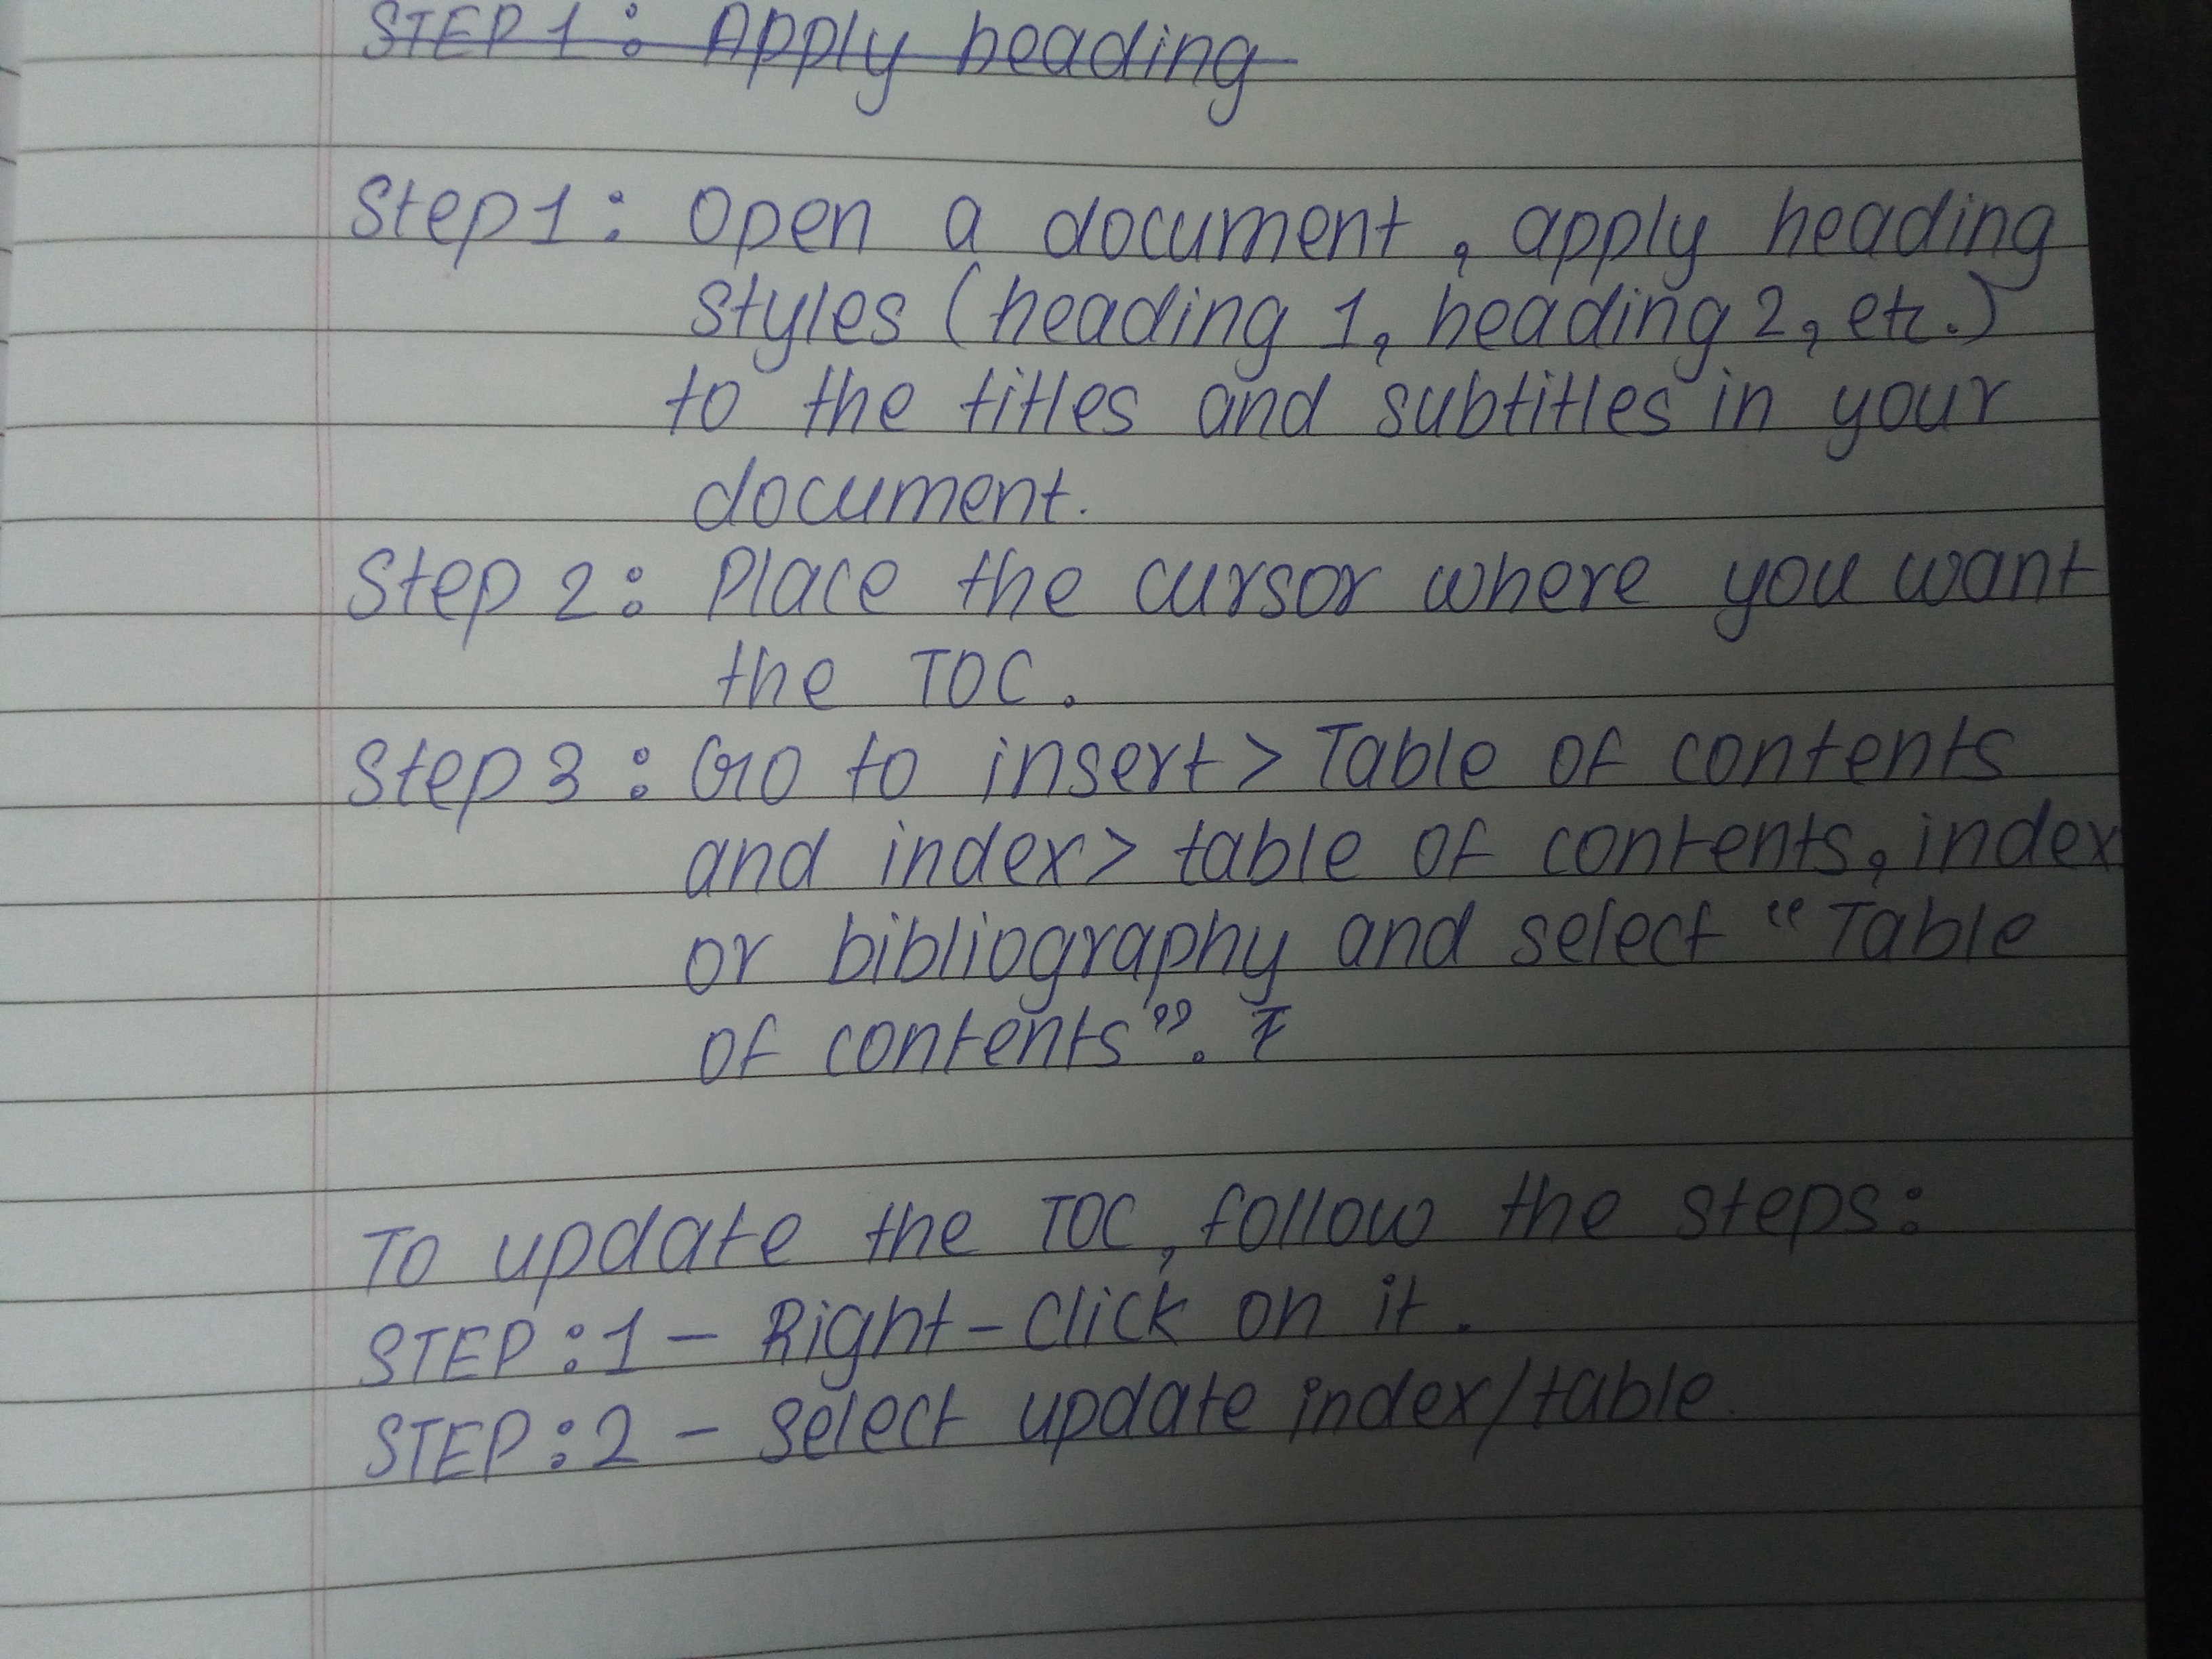 STEP 1: Apply heading
Step 1: Open a document, apply heading
styles (heading 1, heading 2, etc.)
to the titles and subtitles in your
document.
Step 2: Place the cursor where you want
the TOC.
Step 3: Go to insert > Table of contents
and index > table of contents, index
or bibliography and select "Table
of contents".
To update the TOC, follow the steps:
STEP:1 - Right-click on it.
STEP:2 - select update index/table.